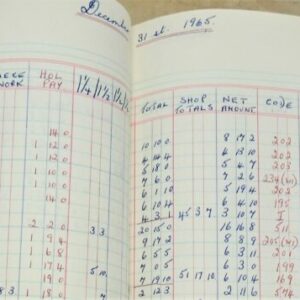 December 31 st. 1965
PIECE WORK HOL PAY 1¼ 1½ 1½ TOTAL SHOP TOTALS NET AMOUNT CODE
14 0 10 10 0 8 17 2 202
1 12 0 4 14 4 4 13 10 202
1 12 0 5 18 0 5 4 7 203
1 10 0 7 6 0 7 2 6 234 (W)
1 10 0 6 1 10 5 19 4 202
14 0 6 10 4 6 4 10 195
4 3 1 45 3 7 3 10 7 I
2 2 0 3 3 20 15 0 16 16 8 511
1 9 4 9 17 2 8 8 9 205 (W)
1 6 8 6 5 5 6 3 11 201
1 17 4 7 0 5 6 3 0 199
1 14 0 5 10 7 19 10 51 17 10 6 4 3 169
18 3 1 8 0 2 12 3 2 11 6 574